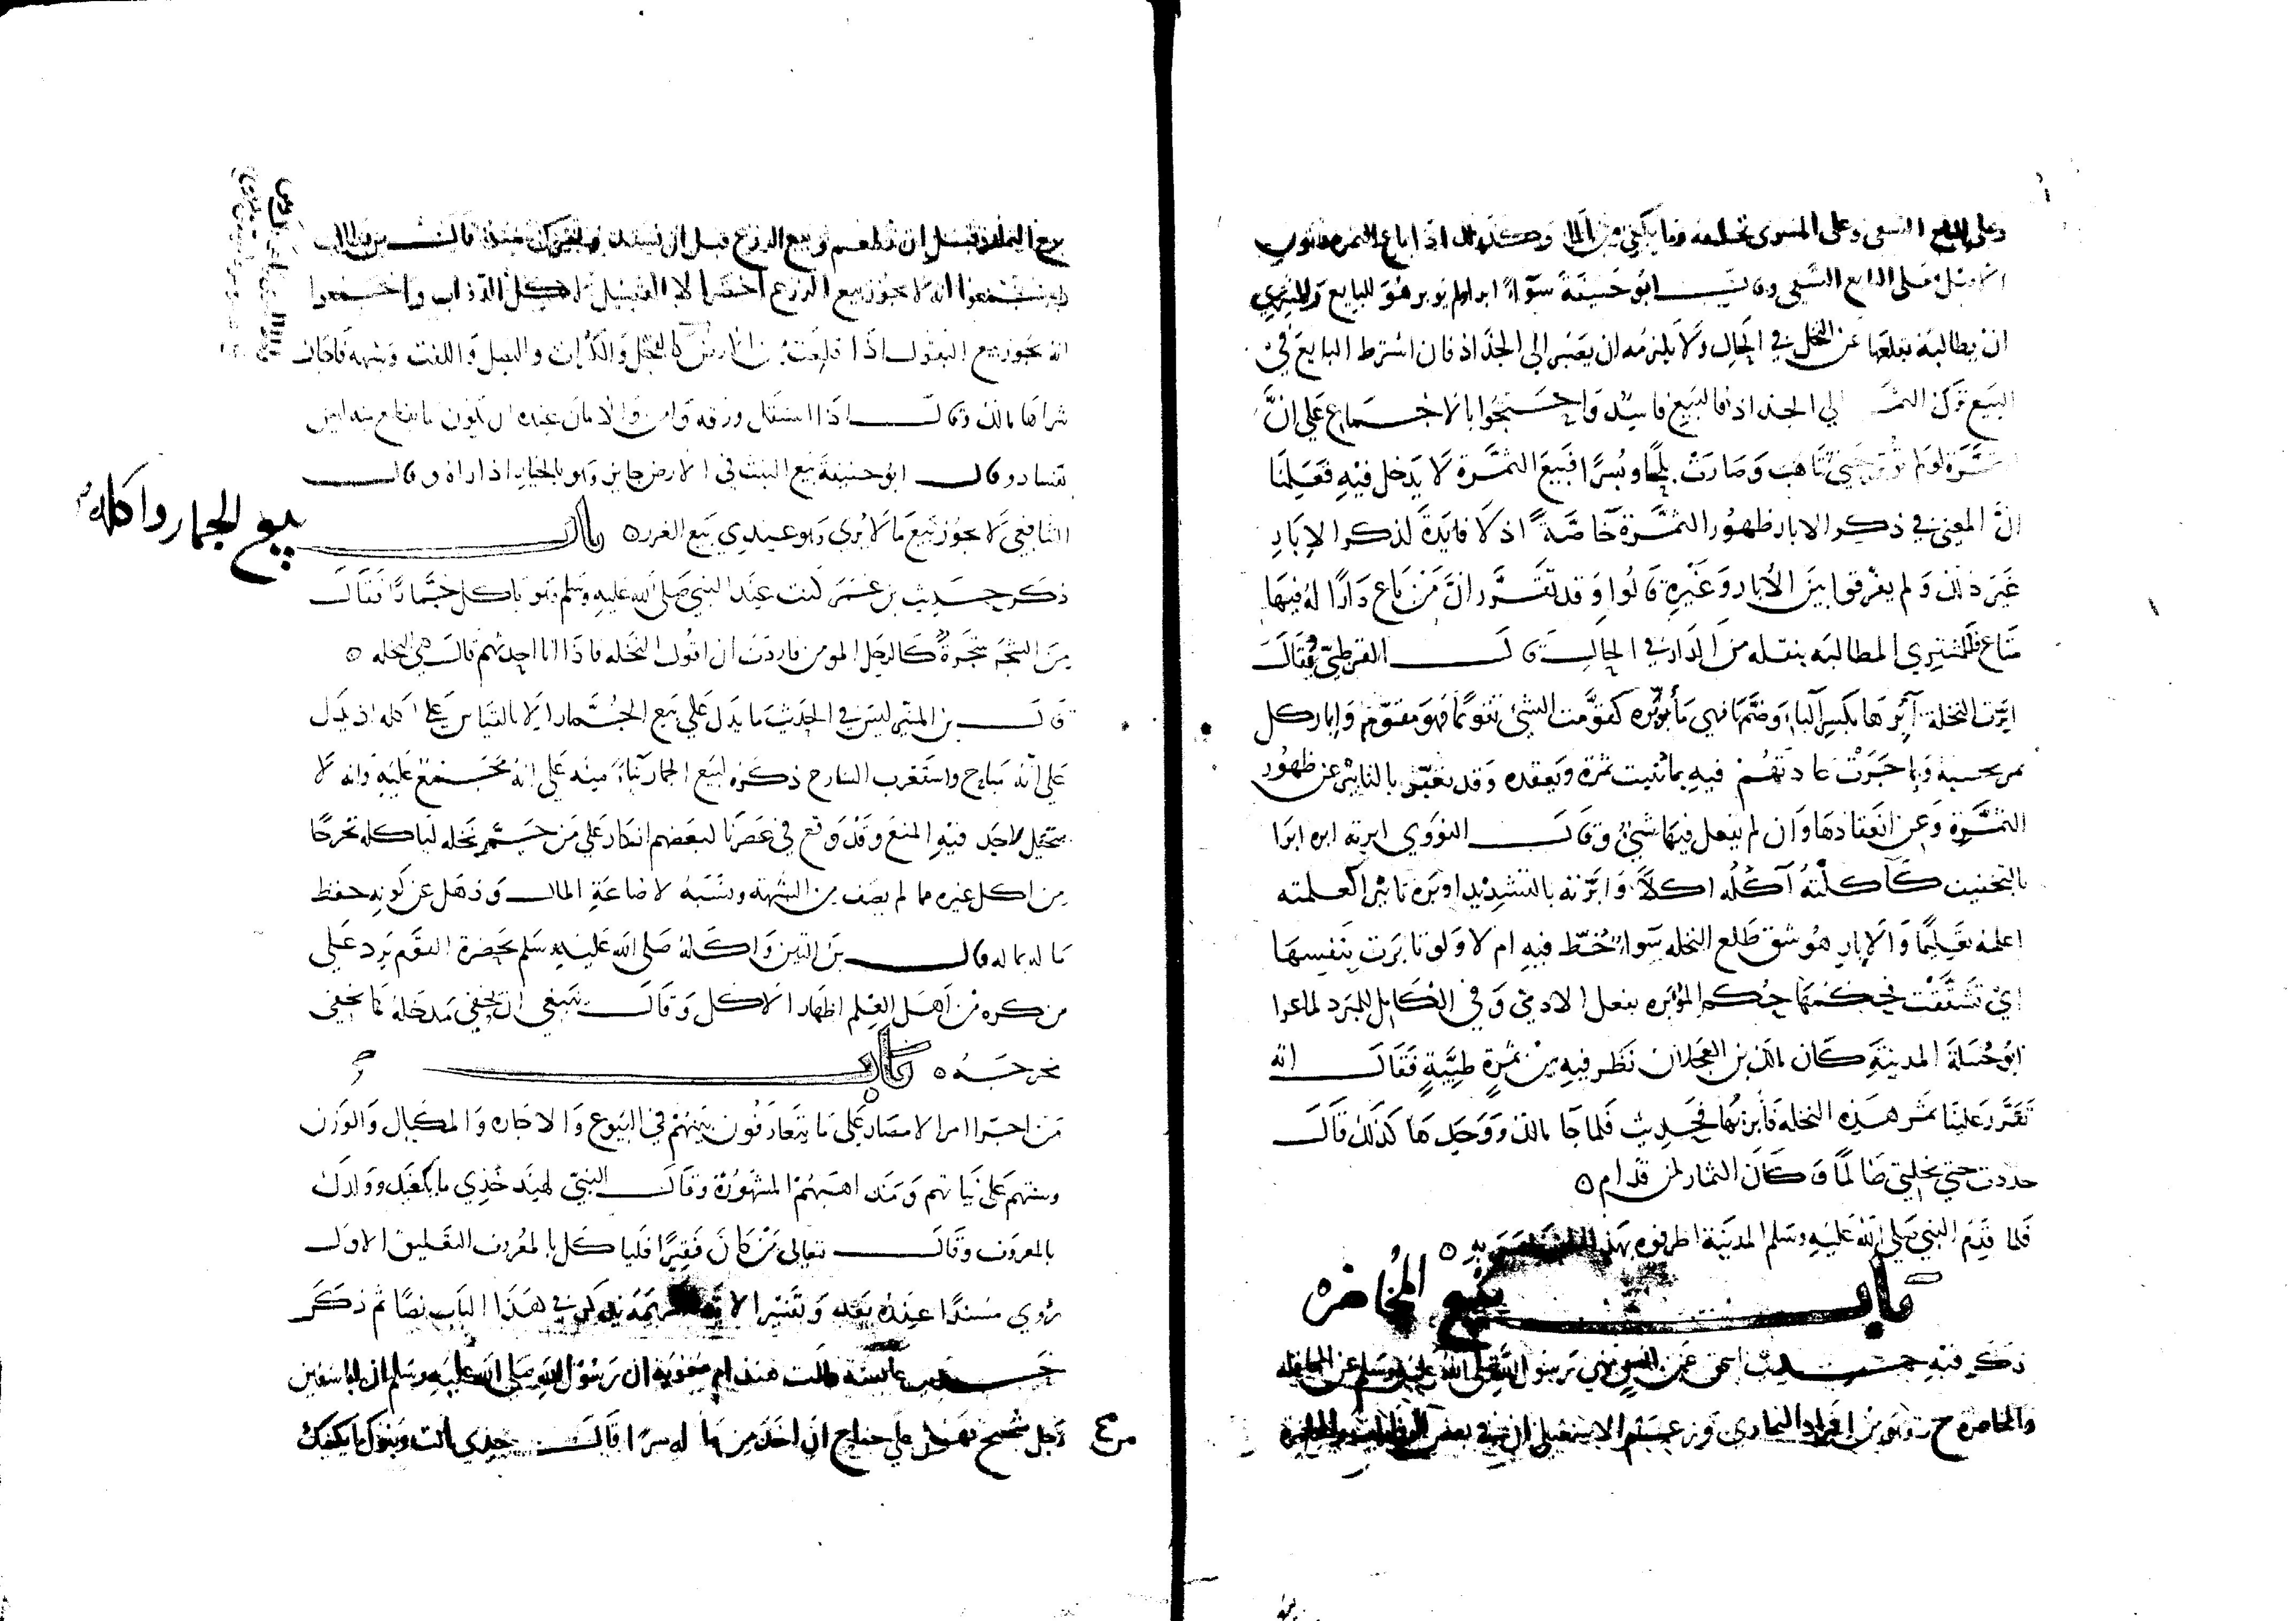 وعلى البايع السقي وعلى المشتري تخليته وما يكفي من الما وكذلك اذا باع الثمرة دون
الاصل فعلى البايع السقي وقال ابو حنيفة سوآء ابر اولم يوبر هو للبايع وللمشتري
ان يطالبه بقلعها عن النخل في الحال ولا يلزمه ان يصبر الى الجذاذ فان اشترط البايع في
البيع ترك الثمر الي الجذاذ فالبيع فاسد واحتجوا بالاجماع علي انّ
الثمرة لولم توبر حتي تناهت وصارت بلحا وبسرا فبيع الثمرة لا يدخل فيه فعلمنا
انّ المعنى في ذكر الابار ظهور الثمرة خاصّة اذ لا فايدة لذكر الابار
غير ذلك ولم يفرقوا بين الأبار وغيره قالوا وقد تقرّر انّ من باع دارا له فيها
متاع فللمشتري المطالبه بنقله من الدار في الحال قال القرطبيّ يقال
ابرت النخلة آبرها بكسر البا وضمها فهي مأبوره كقوّمت الشئ تقويما فهو مقوّم وإبار كل
ثمر بحسبه وبما جرت عادتهم فيه بما يثبت ثمره ويعقده وقد يعبّر بالتابير عن ظهور
الثمرة وعن انعقادها وان لم يفعل فيها شئ وقال النووي ابرته ابره ابرا
بالتخفيف كأكلته آكله اكلا وابّرته بالتشديد اوبره تابيرا كعلمته
اعلمه تعليما والابار هو شق طلع النخله سواء حُطّ فيه ام لا ولو تابرت بنفسها
اي تشققت فحكمها حكم المؤبره بفعل الادمي وفي الكامل للمبرد لما عرا
ابو جبيلة المدينة كان مالك بن العجلان نظر فيه من ثمرة طيبة فقال انه
تقرر علينا ثمر هذه النخله فأبرتها في حديث فلما جا مالك ووجدها كذلك قال
جددت جني نخلتي ظالما وكان الثمار لمن قد ابر
فلما قدم النبي صلى الله عليه وسلم المدينة اطرفوه بهذا
باب بيع المخاضره
ذكر فيه حديث اسحق عن انس نهي رسول الله صلى الله عليه وسلم عن المحاقله
والمخاضره ح وهو من افراد البخاري وزعم الاسمعيلي ان في بعض الروايات والمخاضرة
بيع الثمار قبل ان تطعم وبيع الزرع قبل ان يشتد ويفرك منه قال بن بطال
اجمعوا انه لا يجوز بيع الزرع اخضر الا القصيل لاكل الدواب واجمعوا
انه يجوز بيع البقول اذا قلعت من الارض كالفجل والكراث والبصل واللفت وشبهه فاجاز
شراها مالك وقال اذا استقل ورقه وامن والامان عنده ان يكون ما يقلع منه ليس
بفساد وقال ابو حنيفة بيع النبت في الارض جايز وهو بالخيار اذا راه وقال
الشافعي لا يجوز بيع ما لا يري وهو عندي بيع الغرر باب
بيع الجمار واكله
ذكر حديث بن عمر كنت عند النبي صلى الله عليه وسلم وهو ياكل جمّارا فقال
من الشجر شجرة كالرجل المومن فاردت ان اقول النخله فاذا انا احدثهم قال هي النخله
قال بن المنير ليس في الحديث ما يدل علي بيع الجمار الا بالقياس علي اكله اذ يدل
على انّه مباح واستغرب الشارح ذكره لبيع الجمار بناء منه علي انه مجتمع عليه وانه لا
يتخيل لاحد فيه المنع وقد وقع في عصرنا لبعضهم انكار علي من جمّر نخله لياكله تحرجا
من اكل غيره مما لم يصف من الشبهة ونسبه لاضاعة المال وذهل عن كونه حفظ
ماله بماله وقال بن التين واكله صلى الله عليه وسلم بحضرة القوم يرد علي
من كره من اهل العلم اظهار الاكل وقال ينبغي ان يخفي مدخله كما يخفي
مخرجه باب
من اجرا امر الامصار على ما يتعارفون بينهم في البيوع والاجاره والمكيال والوزن
وسنتهم على نياتهم ومذاهبهم المشهورة وقال النبي لهند خذي ما يكفيك وولدك
بالمعروف وقال تعالى من كان فقيرا فلياكل بالمعروف التعليق الاول
روي مسندا عنده بعد وتفسير الاية في هذا الباب نصا ثم ذكر
حديث عايشه قالت هند ام معويه ان رسول الله صلى الله عليه وسلم ان اباسفين
رجل شحيح فهل علي جناح ان اخذ من ماله سرا قال خذي انت وبنوك ما يكفيك